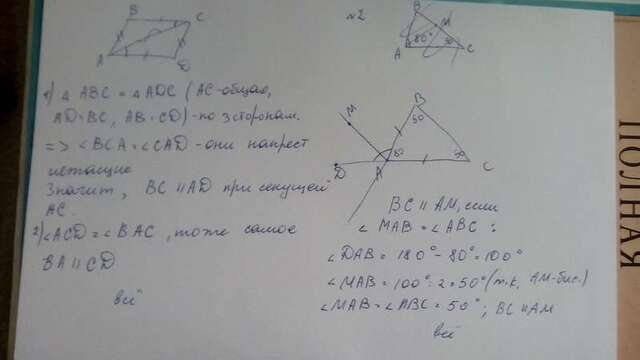 B
C
A
D
1) △ ABC = △ ADC (AC-общая,
AD=BC, AB=CD)-по 3 сторонам.
=> ∠BCA = ∠CAD - они накрест
лежащие
Значит, BC ∥ AD при секущей
AC.
2) ∠ACD = ∠BAC, тоже самое
BA ∥ CD
всё
№2
B
M
A
80°
C
M
B
50
80
50
D
A
C
BC ∥ AM, если
∠MAB = ∠ABC :
∠DAB = 180° - 80° = 100°
∠MAB = 100° : 2 = 50° (т.к. AM-бис.)
∠MAB = ∠ABC = 50° ; BC ∥ AM
всё
ПОЛНАЯ